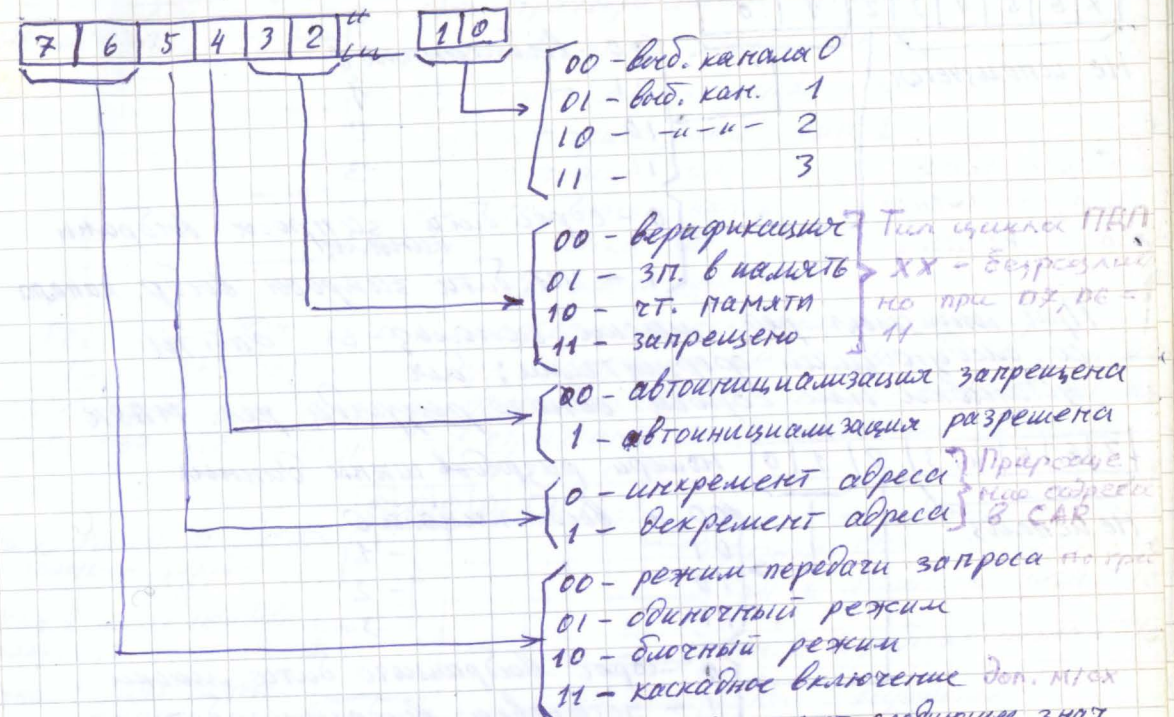 7 6 5 4 3 2 1 0
00 - выб. канала 0
01 - выб. кан. 1
10 - -"-"- 2
11 - 3
00 - верификация
01 - зп. в память
10 - чт. памяти
11 - запрещено
Тип цикла ПДП
XX - безразлич
но при D7, D6 =
11
00 - автоинициализация запрещена
1 - автоинициализация разрешена
0 - инкремент адреса
1 - декремент адреса
Прираще
ние адреса
в CAR
00 - режим передачи запроса
01 - одиночный режим
10 - блочный режим
11 - каскадное включение доп.
знач